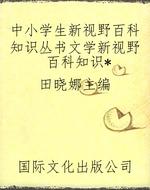 中小学生新视野百科
知识丛书文学新视野
百科知识*
田晓娜主编
国际文化出版公司